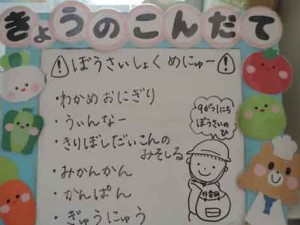 きょうのこんだて
ぼうさいしょく めにゅー
・わかめおにぎり
・うぃんなー
・きりぼしだいこんの
みそしる
・みかんかん
・かんぱん
・ぎゅうにゅう
9がつ1にち
ぼうさいの
ひ